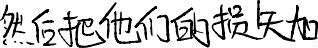 然后把他们的损失加